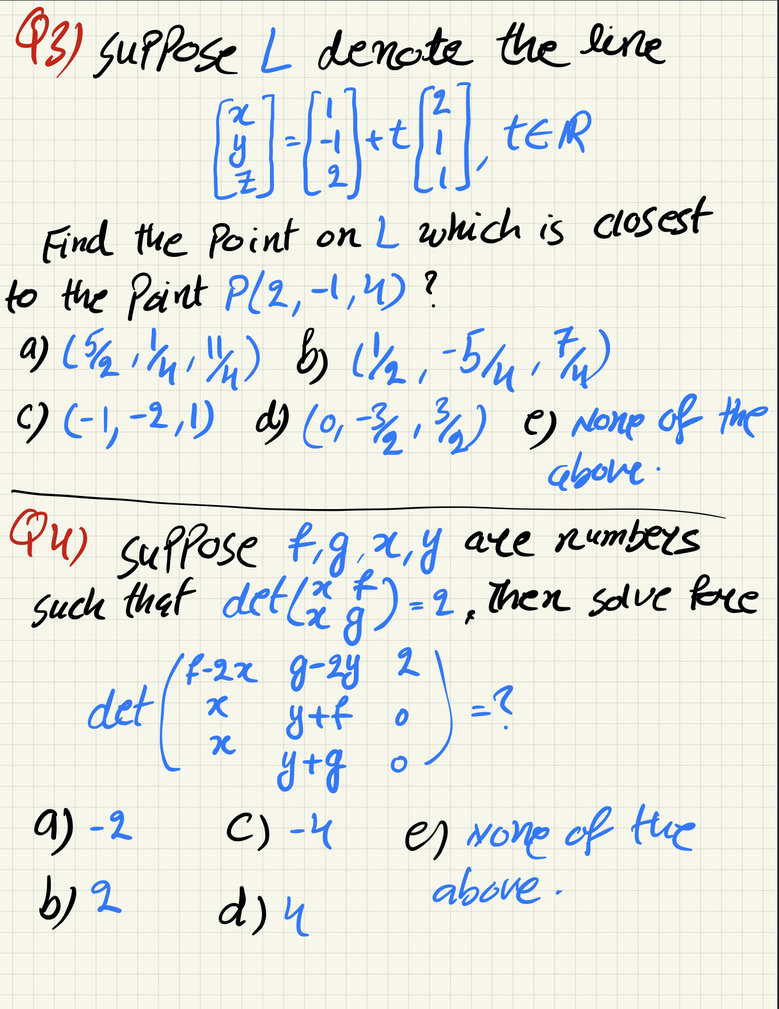 Q3) Suppose L denote the line
[x y z] = [1 -1 2] + t [2 1 1], t∈ℝ
Find the point on L which is closest
to the point P(2, -1, 4) ?
a) (5/2, 1/4, 11/4) b) (1/2, -5/4, 7/4)
c) (-1, -2, 1) d) (0, -3/2, 3/2) e) None of the
above.
Q4) Suppose f, g, x, y are numbers
such that det(x f
x g) = 2, Then solve fore
det (f-2x g-2y 2
x y+f 0
x y+g 0) = ?
a) -2 c) -4 e) None of the
above.
b) 2 d) 4